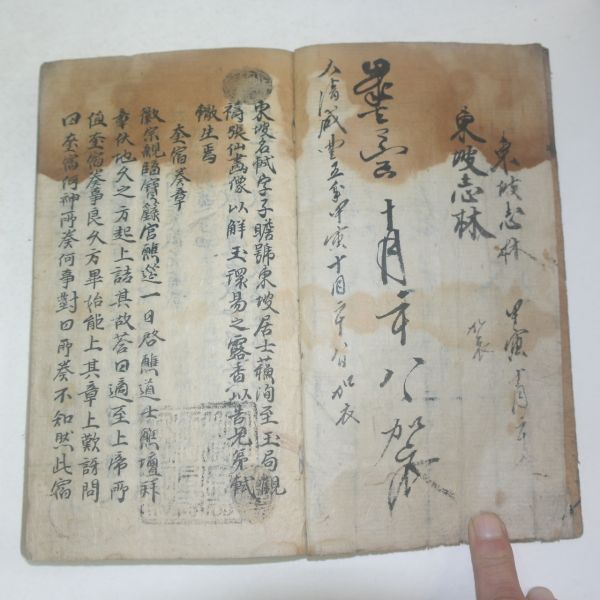 東坡志林
甲寅十月
加衣
東坡志林
十月二十八加衣
大清咸豐五年甲寅十月二十八日加衣
東坡名軾字子瞻號東坡居士蘓洵至玉局觀
禱張仙畫像以解玉環易之露香以告兄弟軾
轍生焉
奎宿奏章
徽宗親臨寳籙宫醮筵一日啓醮道士醮壇拜
章伏地久之方起上詰其故荅曰適至上帝所
值奎宿奏事良久方畢始能上其章上歎訝問
曰奎宿何神所奏何事對曰所奏不知然此宿